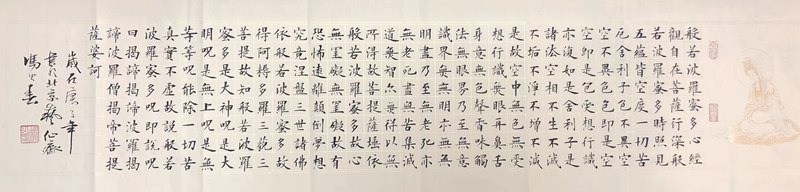 般若波羅蜜多心經
觀自在菩薩行深般
若波羅蜜多時照見
五蘊皆空度一切苦
厄舍利子色不異空
空不異色色即是空
空即是色受想行識
亦復如是舍利子是
諸法空相不生不滅
不垢不淨不增不減
是故空中無色無受
想行識無眼耳鼻舌
身意無色聲香味觸
法無眼界乃至無意
識界無無明亦無無
明盡乃至無老死亦
無老死盡無苦集滅
道無智亦無得以無
所得故菩提薩埵依
般若波羅蜜多故心
無罣礙無罣礙故有
恐怖遠離顛倒夢想
究竟涅盤三世諸佛
依般若波羅蜜多故
得阿耨多羅三藐三
菩提故知般若波羅
蜜多是大神呪是大
明呪是無上呪是無
等等呪能除一切苦
真實不虛故說般若
波羅蜜多呪即說呪
曰揭諦揭諦波羅揭
諦波羅僧揭諦菩提
薩婆訶
歲在庚子年
書於北京